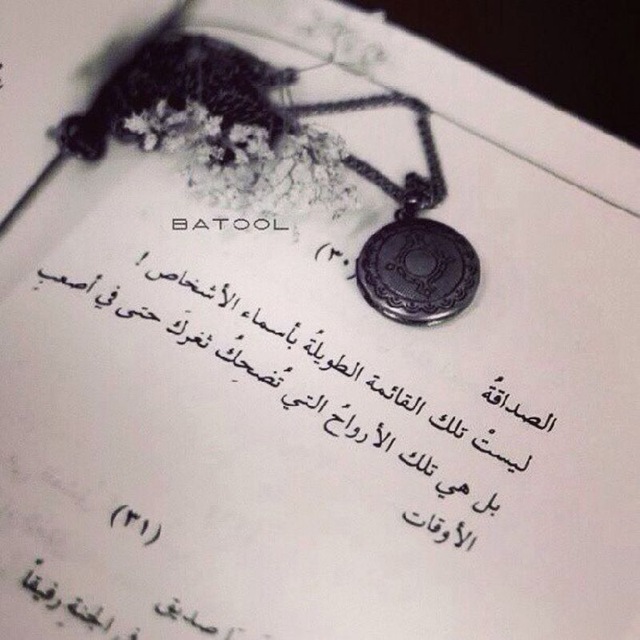 BATOOL
(٣٠)
الصداقةُ
ليستْ تلك القائمة الطويلةُ بأسماء الأشخاص !
بل هي تلك الأرواحُ التي تُضحِكُ ثغركَ حتى في أصعبِ
الأوقات
(٣١)
صديق
في الجنةِ رفيقاً